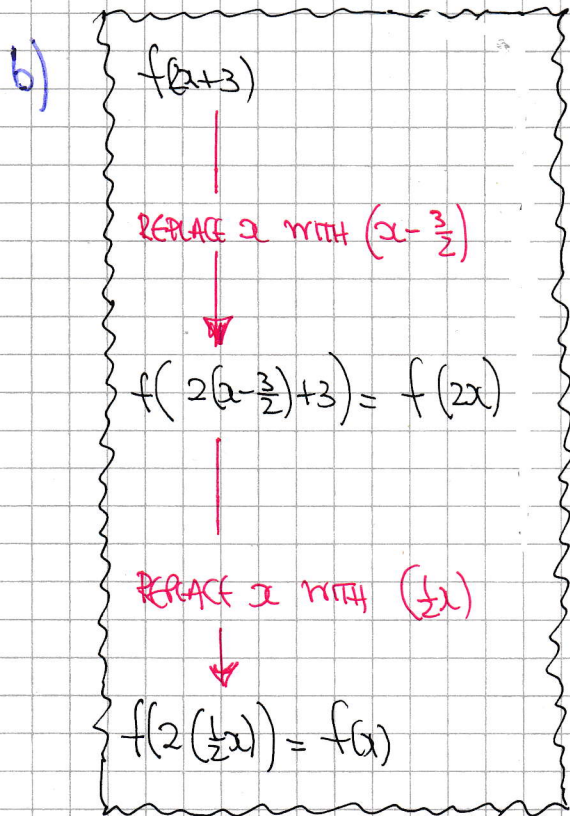 b)
f(2x+3)
REPLACE x WITH (x - 3/2)
f( 2(x - 3/2) + 3 ) = f(2x)
REPLACE x WITH (1/2x)
f(2(1/2x)) = f(x)